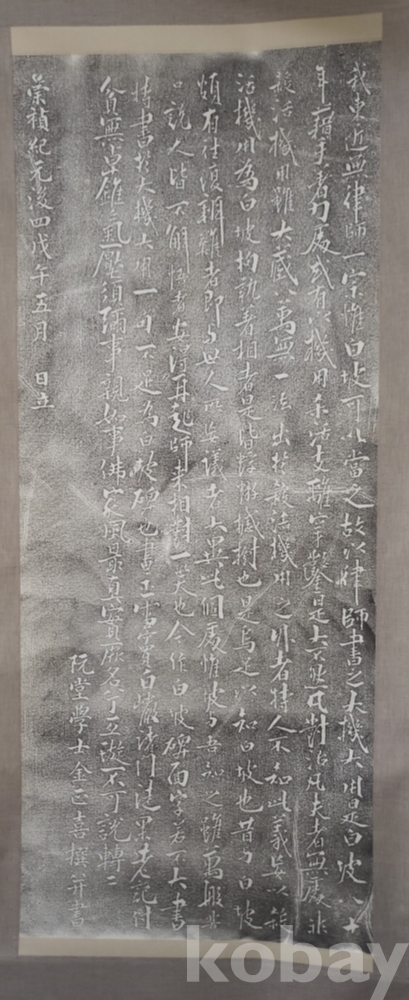 我東近無律師一宗惟白坡可以當之故以律師書之大機大用是白坡八十
年藉手着力處或有以機用殺活支離穿鑿是大不然凡對治凡夫者無處非
殺活機用雖大藏八萬無一法出於殺活機用之外者特人不知此義妄以殺
活機用為白坡拘執着相者是皆蜉蝣撼樹也是烏足以知白坡也昔與白坡
頗有往復辨難者即與世人所妄議者大異此個處惟坡與吾知之雖萬般苦
口說人皆不解悟者安得再起師來相對一笑也今作白坡碑面字若不大書
特書於大機大用一句不足為白坡碑也書示雪竇白巖諸門徒果老記付
貧無卓錐氣壓須彌事親如事佛家風最真實厥名兮亘璇不可說轉轉
阮堂學士金正喜撰并書
崇禎紀元後四戊午五月 日立
kobay